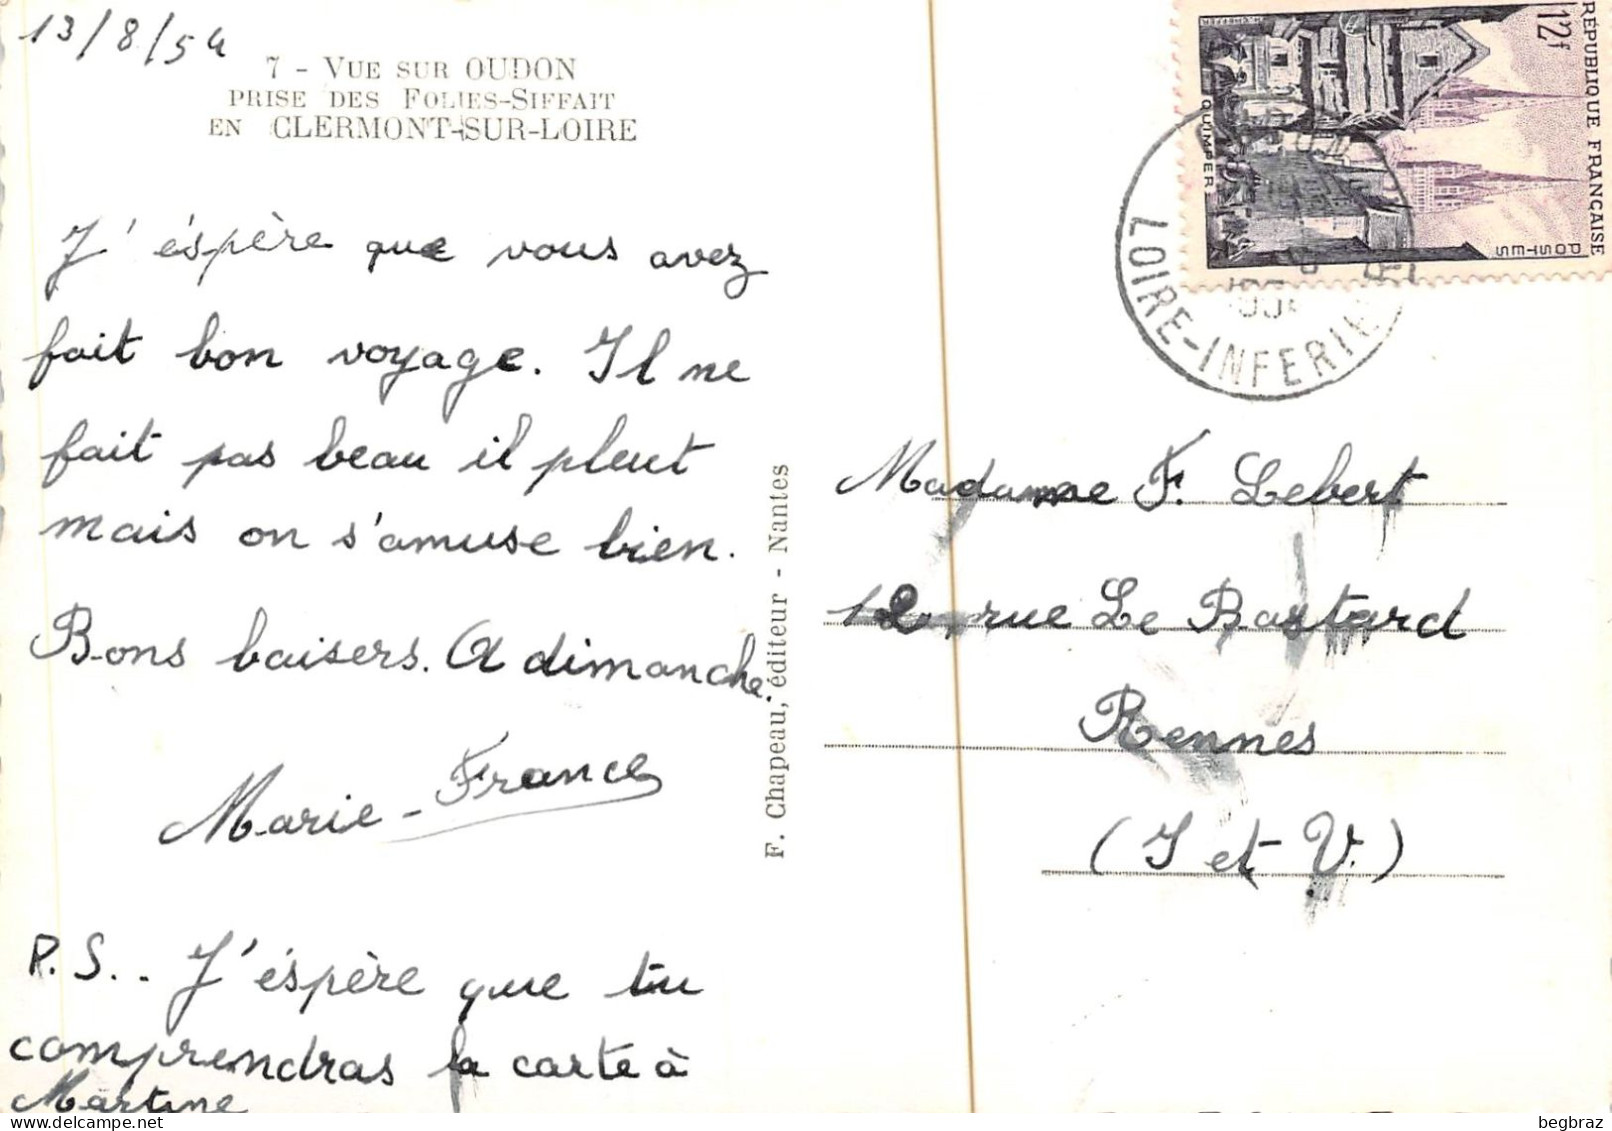 13/8/54
7 - VUE SUR OUDON
PRISE DES FOLIES-SIFFAIT
EN CLERMONT-SUR-LOIRE
J'éspère que vous avez
fait bon voyage. Il ne
fait pas beau il pleut
mais on s'amuse bien.
Bons baisers. A dimanche.
Marie-France
P.S.. J'éspère que tu
comprendras la carte à
Martine
F. Chapeau, éditeur - Nantes
RÉPUBLIQUE FRANÇAISE
12f
POSTES
QUIMPER
H. CHEFFER
LOIRE-INFERIE
Madame F. Lebert
rue Le Bastard
Rennes
(I et V.)
begbraz